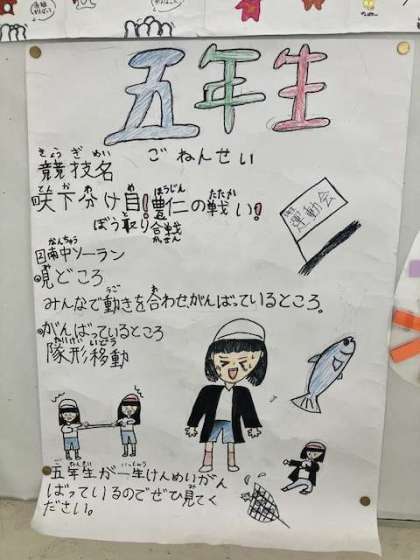 五年生
ごねんせい
きょうぎめい
競技名
てんかわ ほうじん たたか
天下分け目!豊仁の戦い!
ぼう取り合戦
がっせん
なんちゅう
南中ソーラン
運動会
見どころ
うご あ
みんなで動きを合わせ、がんばっているところ。
がんばっているところ
たいけいいどう
隊形移動
五年生が一生けんめいがん
ばっているのでぜひ見てく
ださい。